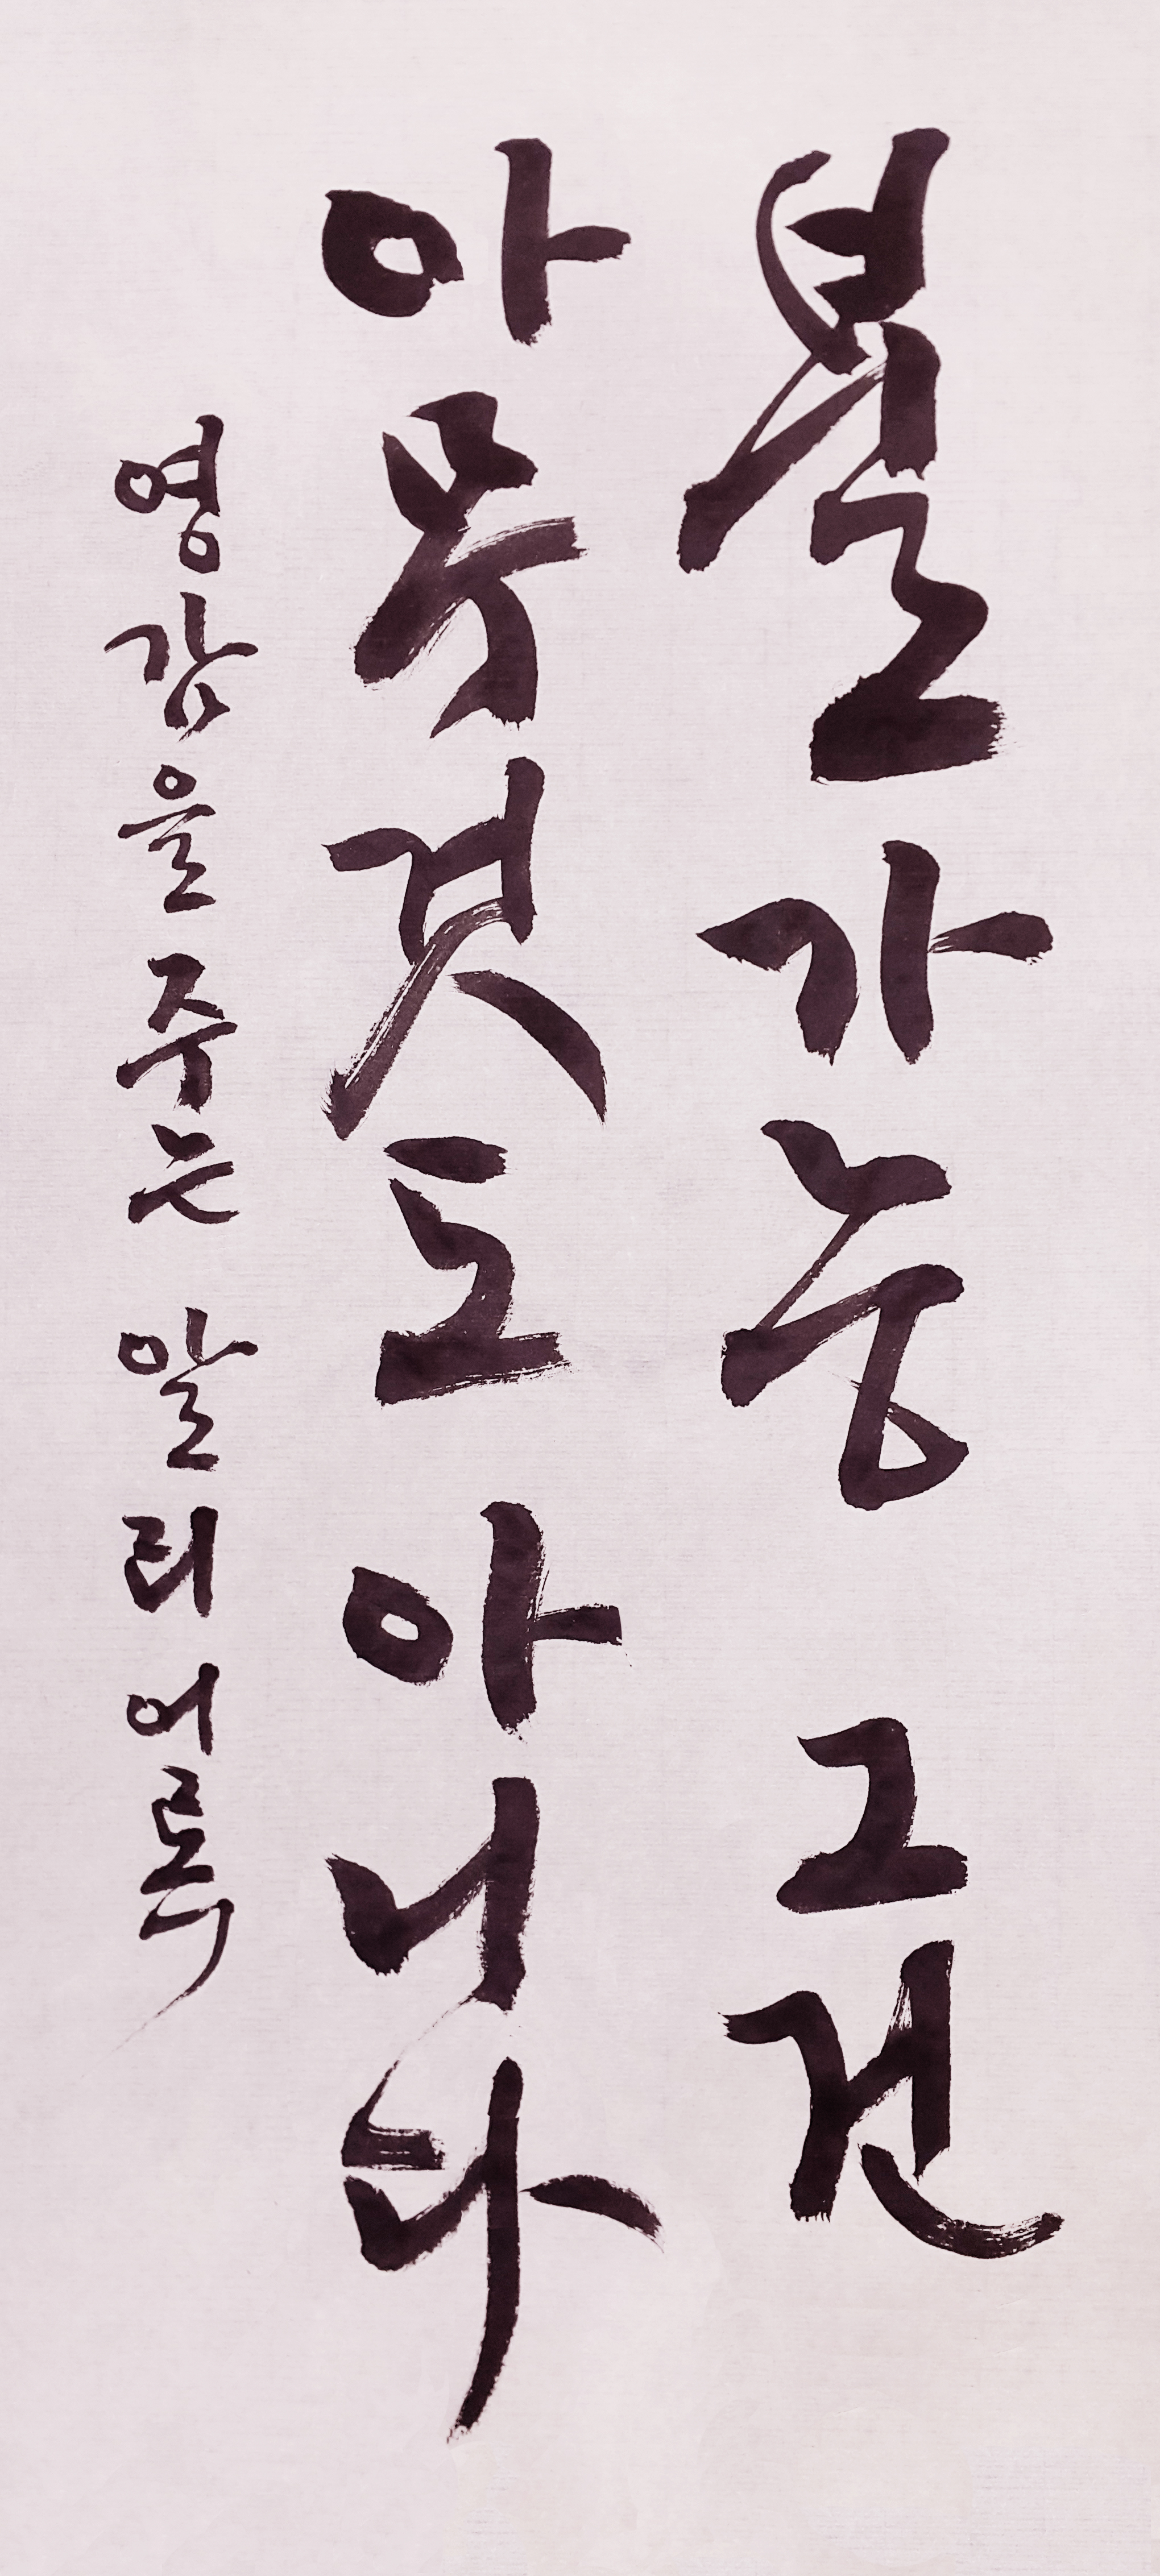 불가능 그건
아무것도 아니다
영감을 주는 알리 어록